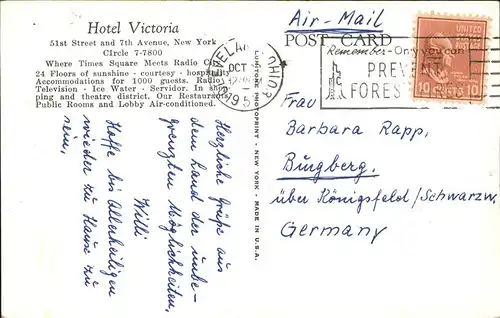 Hotel Victoria
51st Street and 7th Avenue, New York
CIrcle 7-7800
Where Times Square Meets Radio City
24 Floors of sunshine - courtesy - hospitality
Accommodations for 1000 guests. Radio
Television - Ice Water - Servidor. In shop-
ping and theatre district. Our Restaurant
Public Rooms and Lobby Air-conditioned.
Herzliche Grüße aus
dem Land der unbe-
grenzten Möglichkeiten,
Willi
Hoffe bis Allerheiligen
wieder zu Hause zu
sein,
LUMITONE PHOTOPRINT - NEW YORK - MADE IN U.S.A.
Air-Mail
POST CARD
OCT
OHIO
Remember-Only you can
PREV
FOREST
UNITED
10 CENTS 10
Frau
Barbara Rapp,
Burgberg,
über Königsfeld/Schwarzw.
Germany